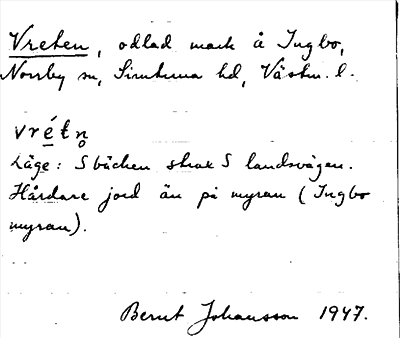 Vreten, odlad mark å Ingbo,
Norrby sn, Simtuna hd, Västm. l.
vrétn̥
Läge: S bäcken strax S landsvägen.
Hårdare jord än på myran (Ingbo
myran).
Bernt Johansson 1947.